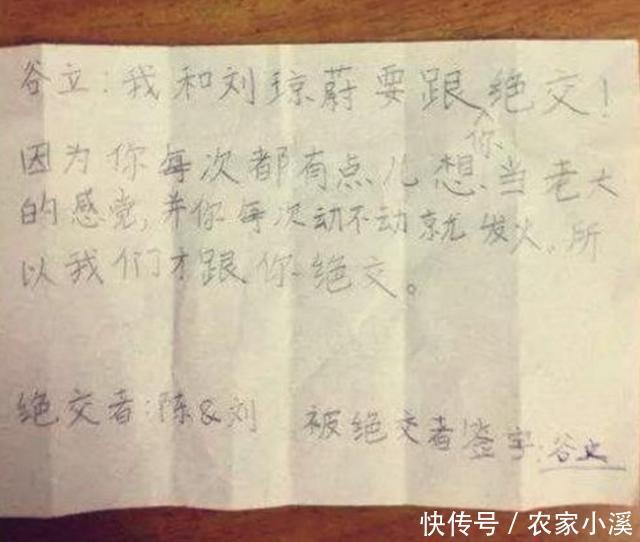 谷立:我和刘琼蔚要跟你绝交!
因为你每次都有点儿想当老大
的感觉,并你每次动不动就发火。所
以我们才跟你绝交。
绝交者:陈&刘 被绝交者签字:谷立
快传号 / 农家小溪